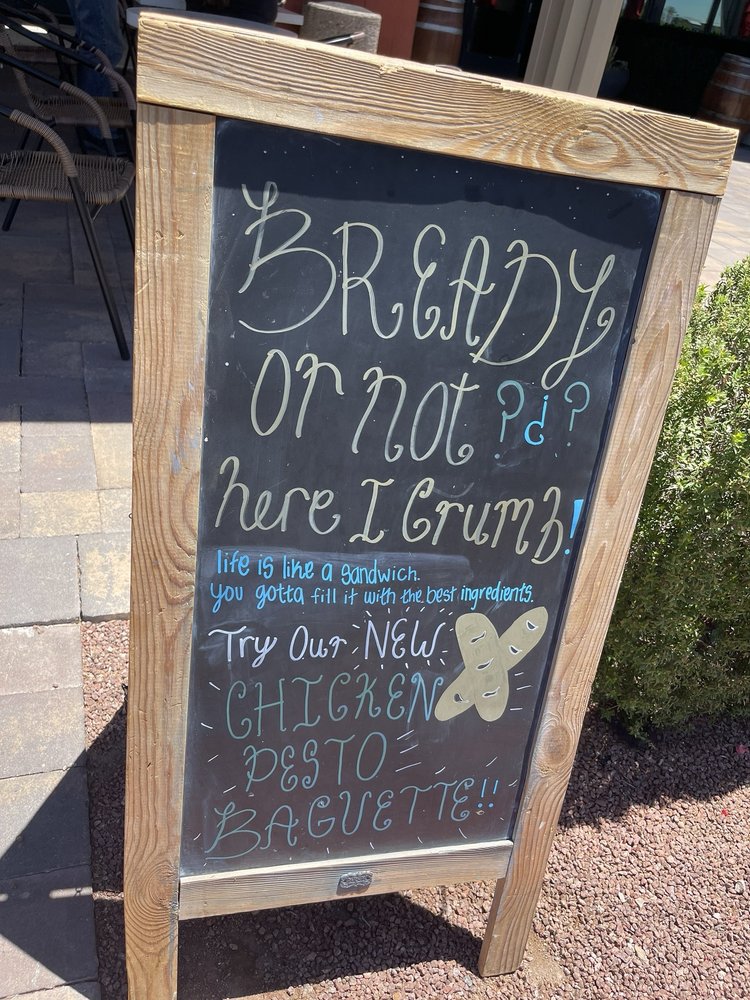 BREADY
or not ?¿?
here I Crumb!
life is like a sandwich.
you gotta fill it with the best ingredients.
Try Our NEW
CHICKEN
PESTO
BAGUETTE!!